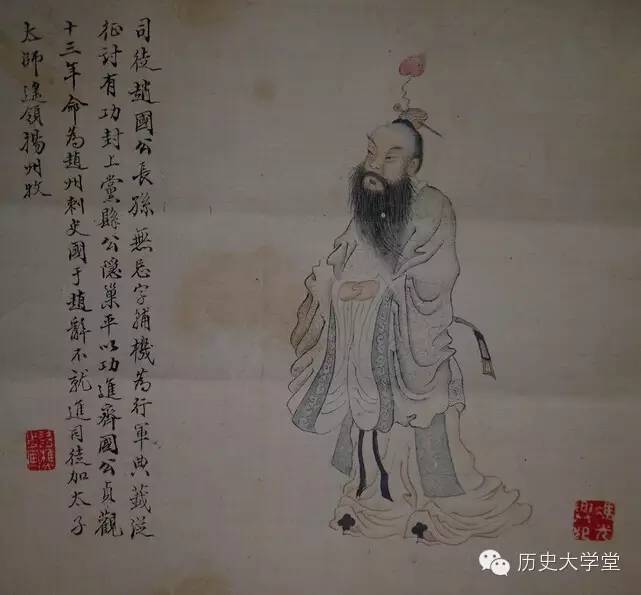 司徒趙國公長孫無忌字輔機為行軍典籤從
征討有功封上黨縣公隱巢平以功進齊國公貞觀
十三年命為趙州刺史國于趙辭不就進司徒加太子
太師遙領揚州牧
历史大学堂